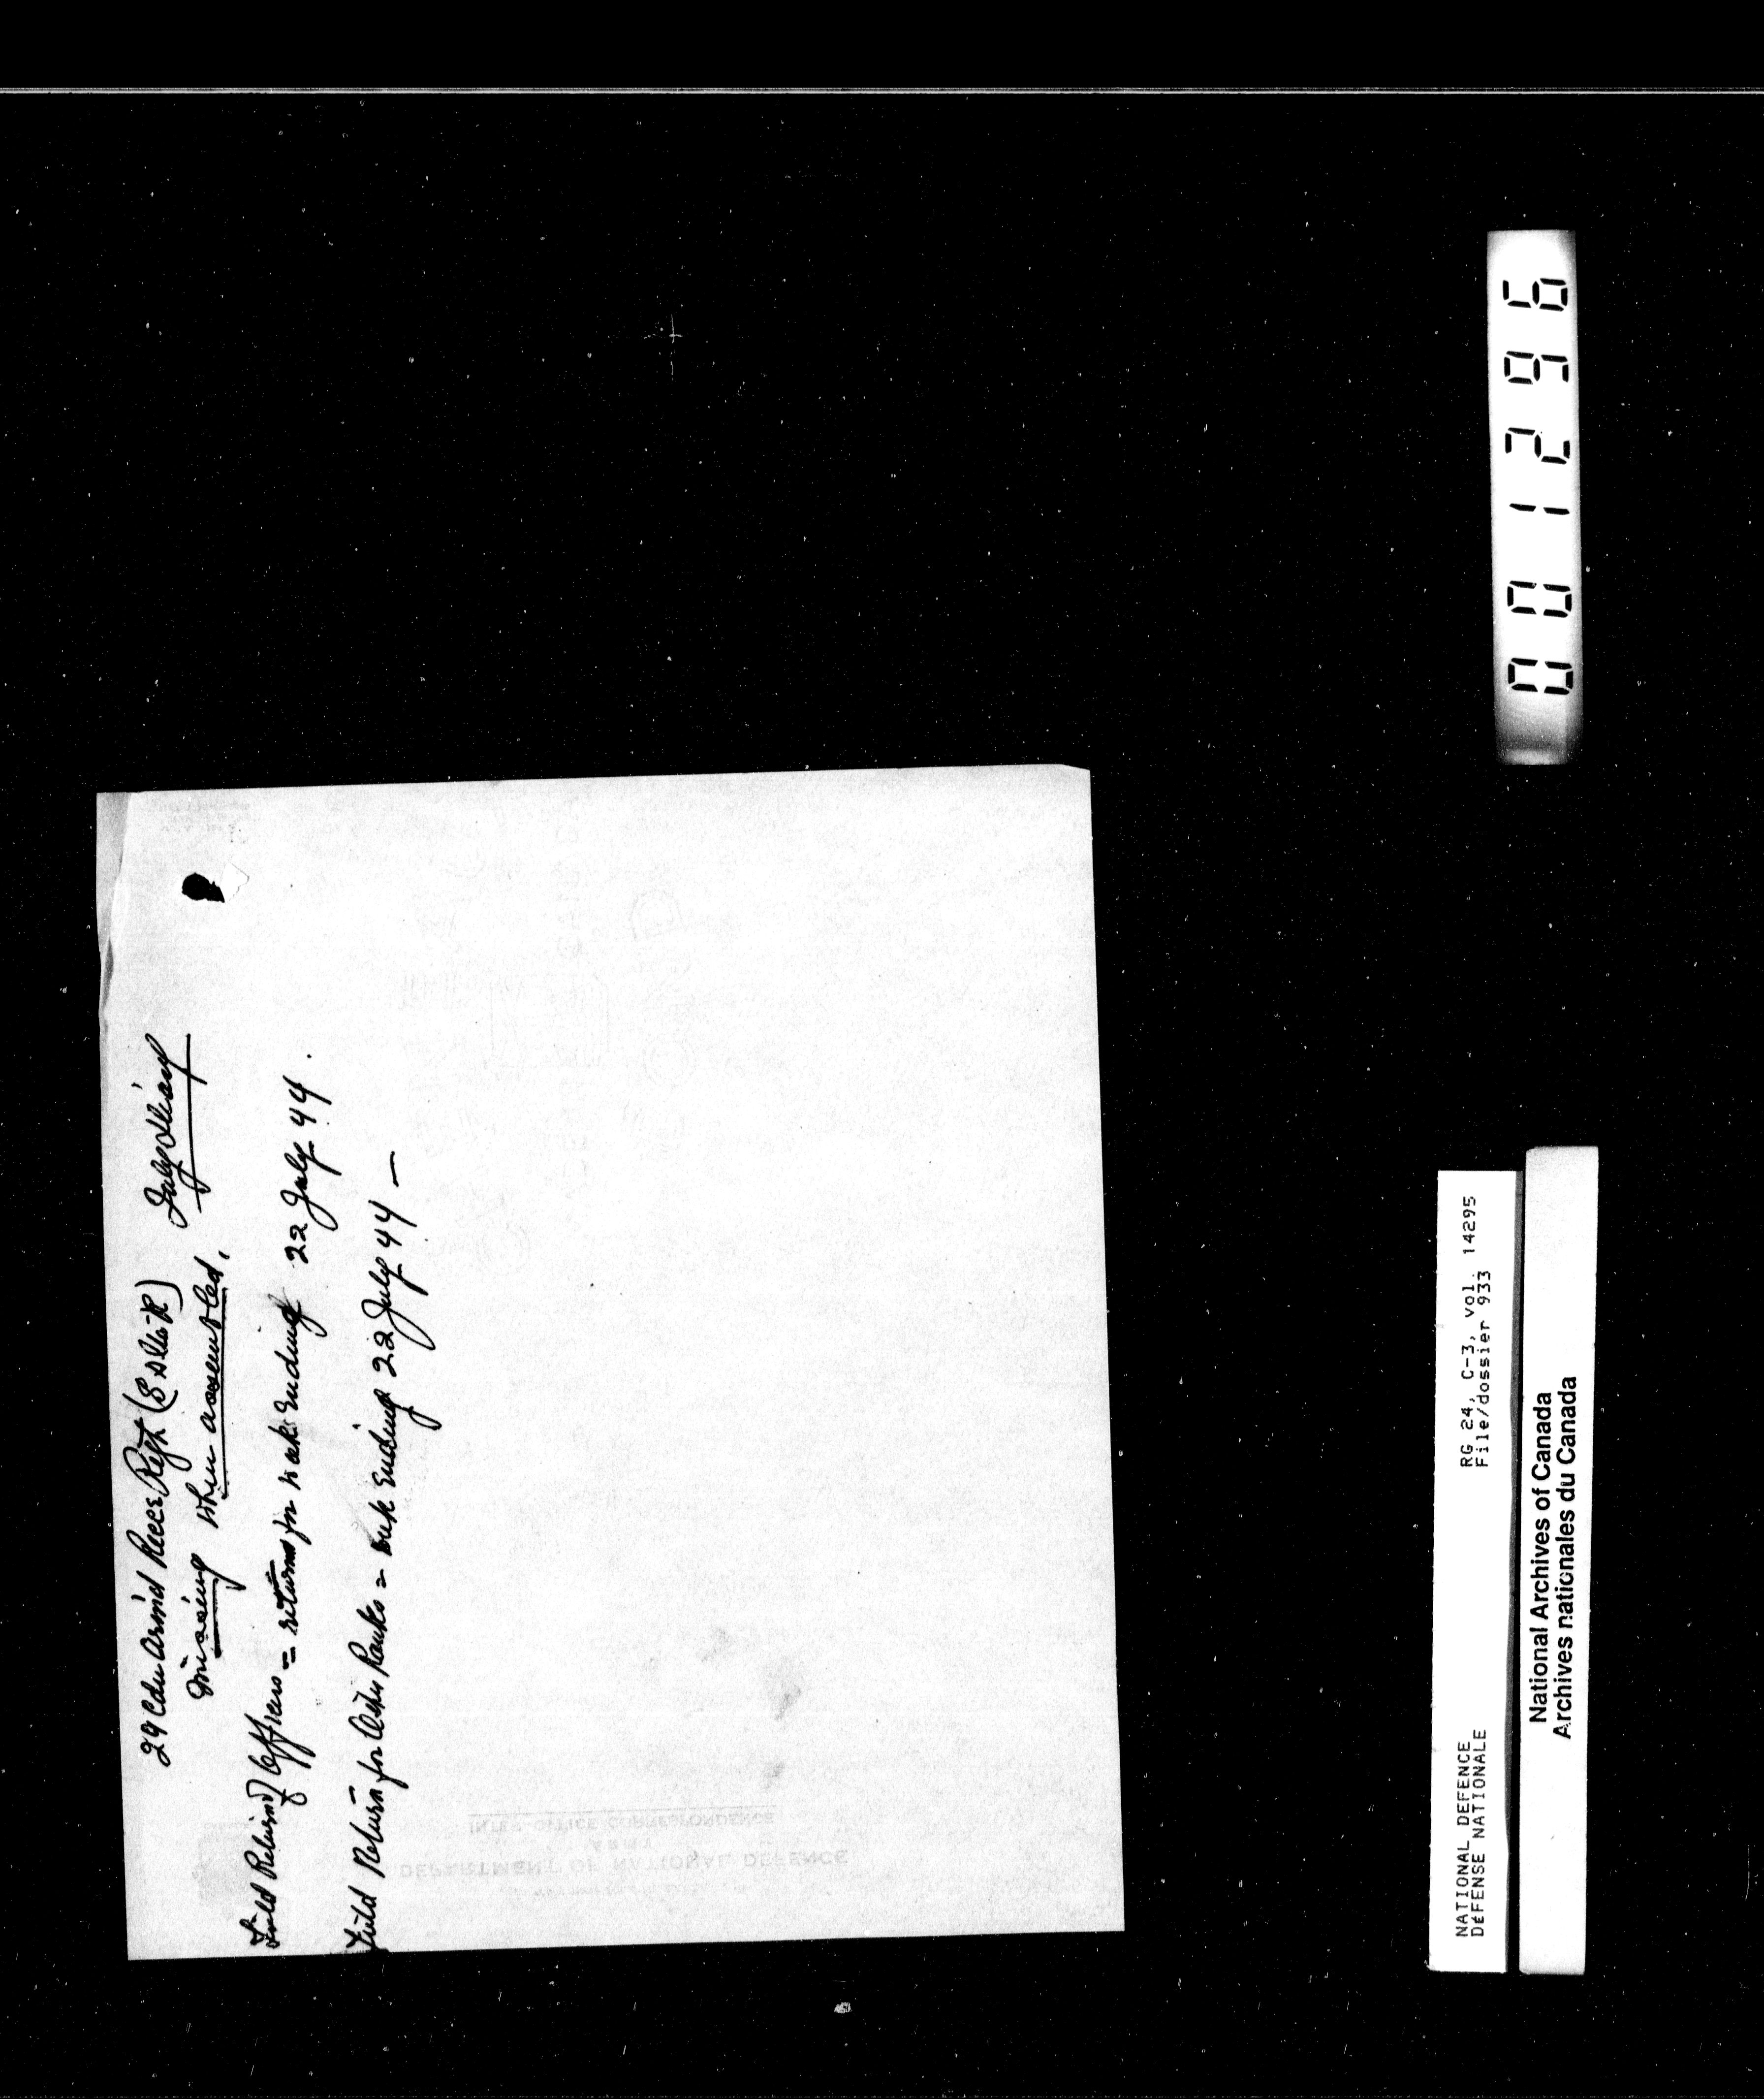 29 Cdn Armd Recce Regt (S Alta R) July diary
missing when assembled.
Field Return of Officers = returns for week ending 22 July 44.
Field Return for Other Ranks = week ending 22 July 44 —
DEPARTMENT OF NATIONAL DEFENCE
ARMY
INTER-OFFICE CORRESPONDENCE
001296
NATIONAL DEFENCE RG 24, C-3, vol. 14295
DÉFENSE NATIONALE File/dossier 933
National Archives of Canada
Archives nationales du Canada